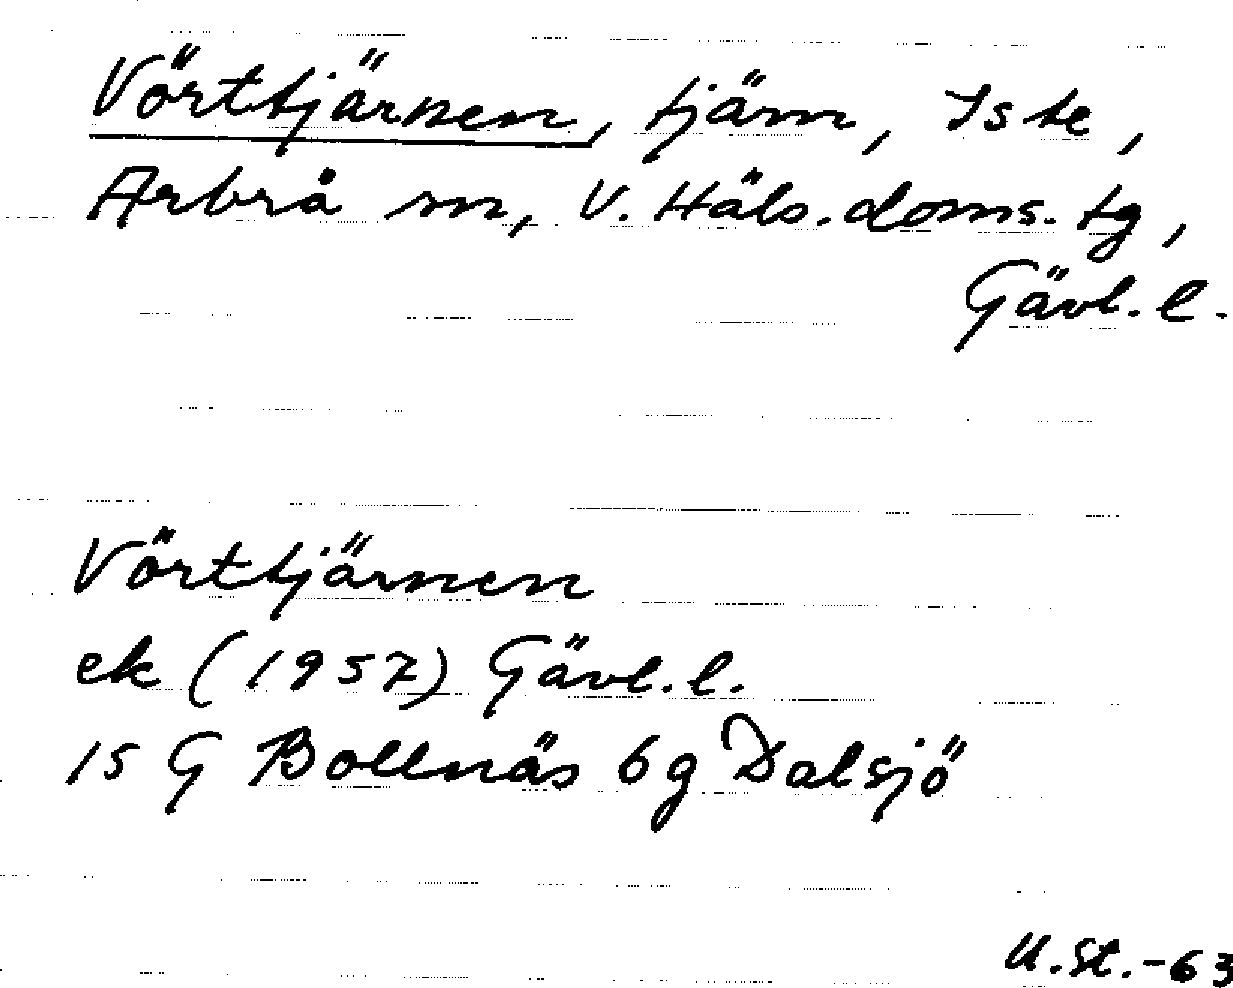 Vörttjärnen, tjärn, Iste,
Arbrå sn, V. Häls. doms. tg,
Gävl. l.
Vörttjärnen
ek (1957) Gävl. l.
15 G Bollnäs 6g Dalsjö
U.St.-63